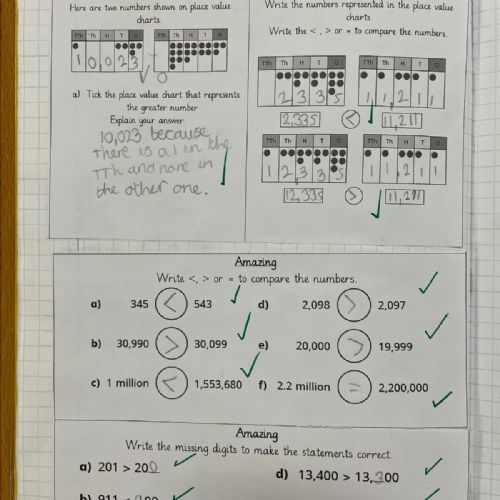 Here are two numbers shown on place value
charts.
TTh Th H T O
TTh Th H T O
1 0,0 2 3
0
a) Tick the place value chart that represents
the greater number
Explain your answer
10,023 because
there is a 1 in the
TTh and none in
the other one.
Write the numbers represented in the place value
charts.
Write the < , > or = to compare the numbers.
TTh Th H T O
TTh Th H T O
2 3 3 5
1 1, 2 1 1
2,335 < 11,211
TTh Th H T O
TTh Th H T O
1 2, 3 3 5
1 1, 2 1 1
12,335 > 11,211
Amazing
Write <, > or = to compare the numbers.
a) 345 < 543
d) 2,098 > 2,097
b) 30,990 > 30,099
e) 20,000 > 19,999
c) 1 million < 1,553,680
f) 2.2 million = 2,200,000
Amazing
Write the missing digits to make the statements correct.
a) 201 > 200
d) 13,400 > 13,300
b) 911